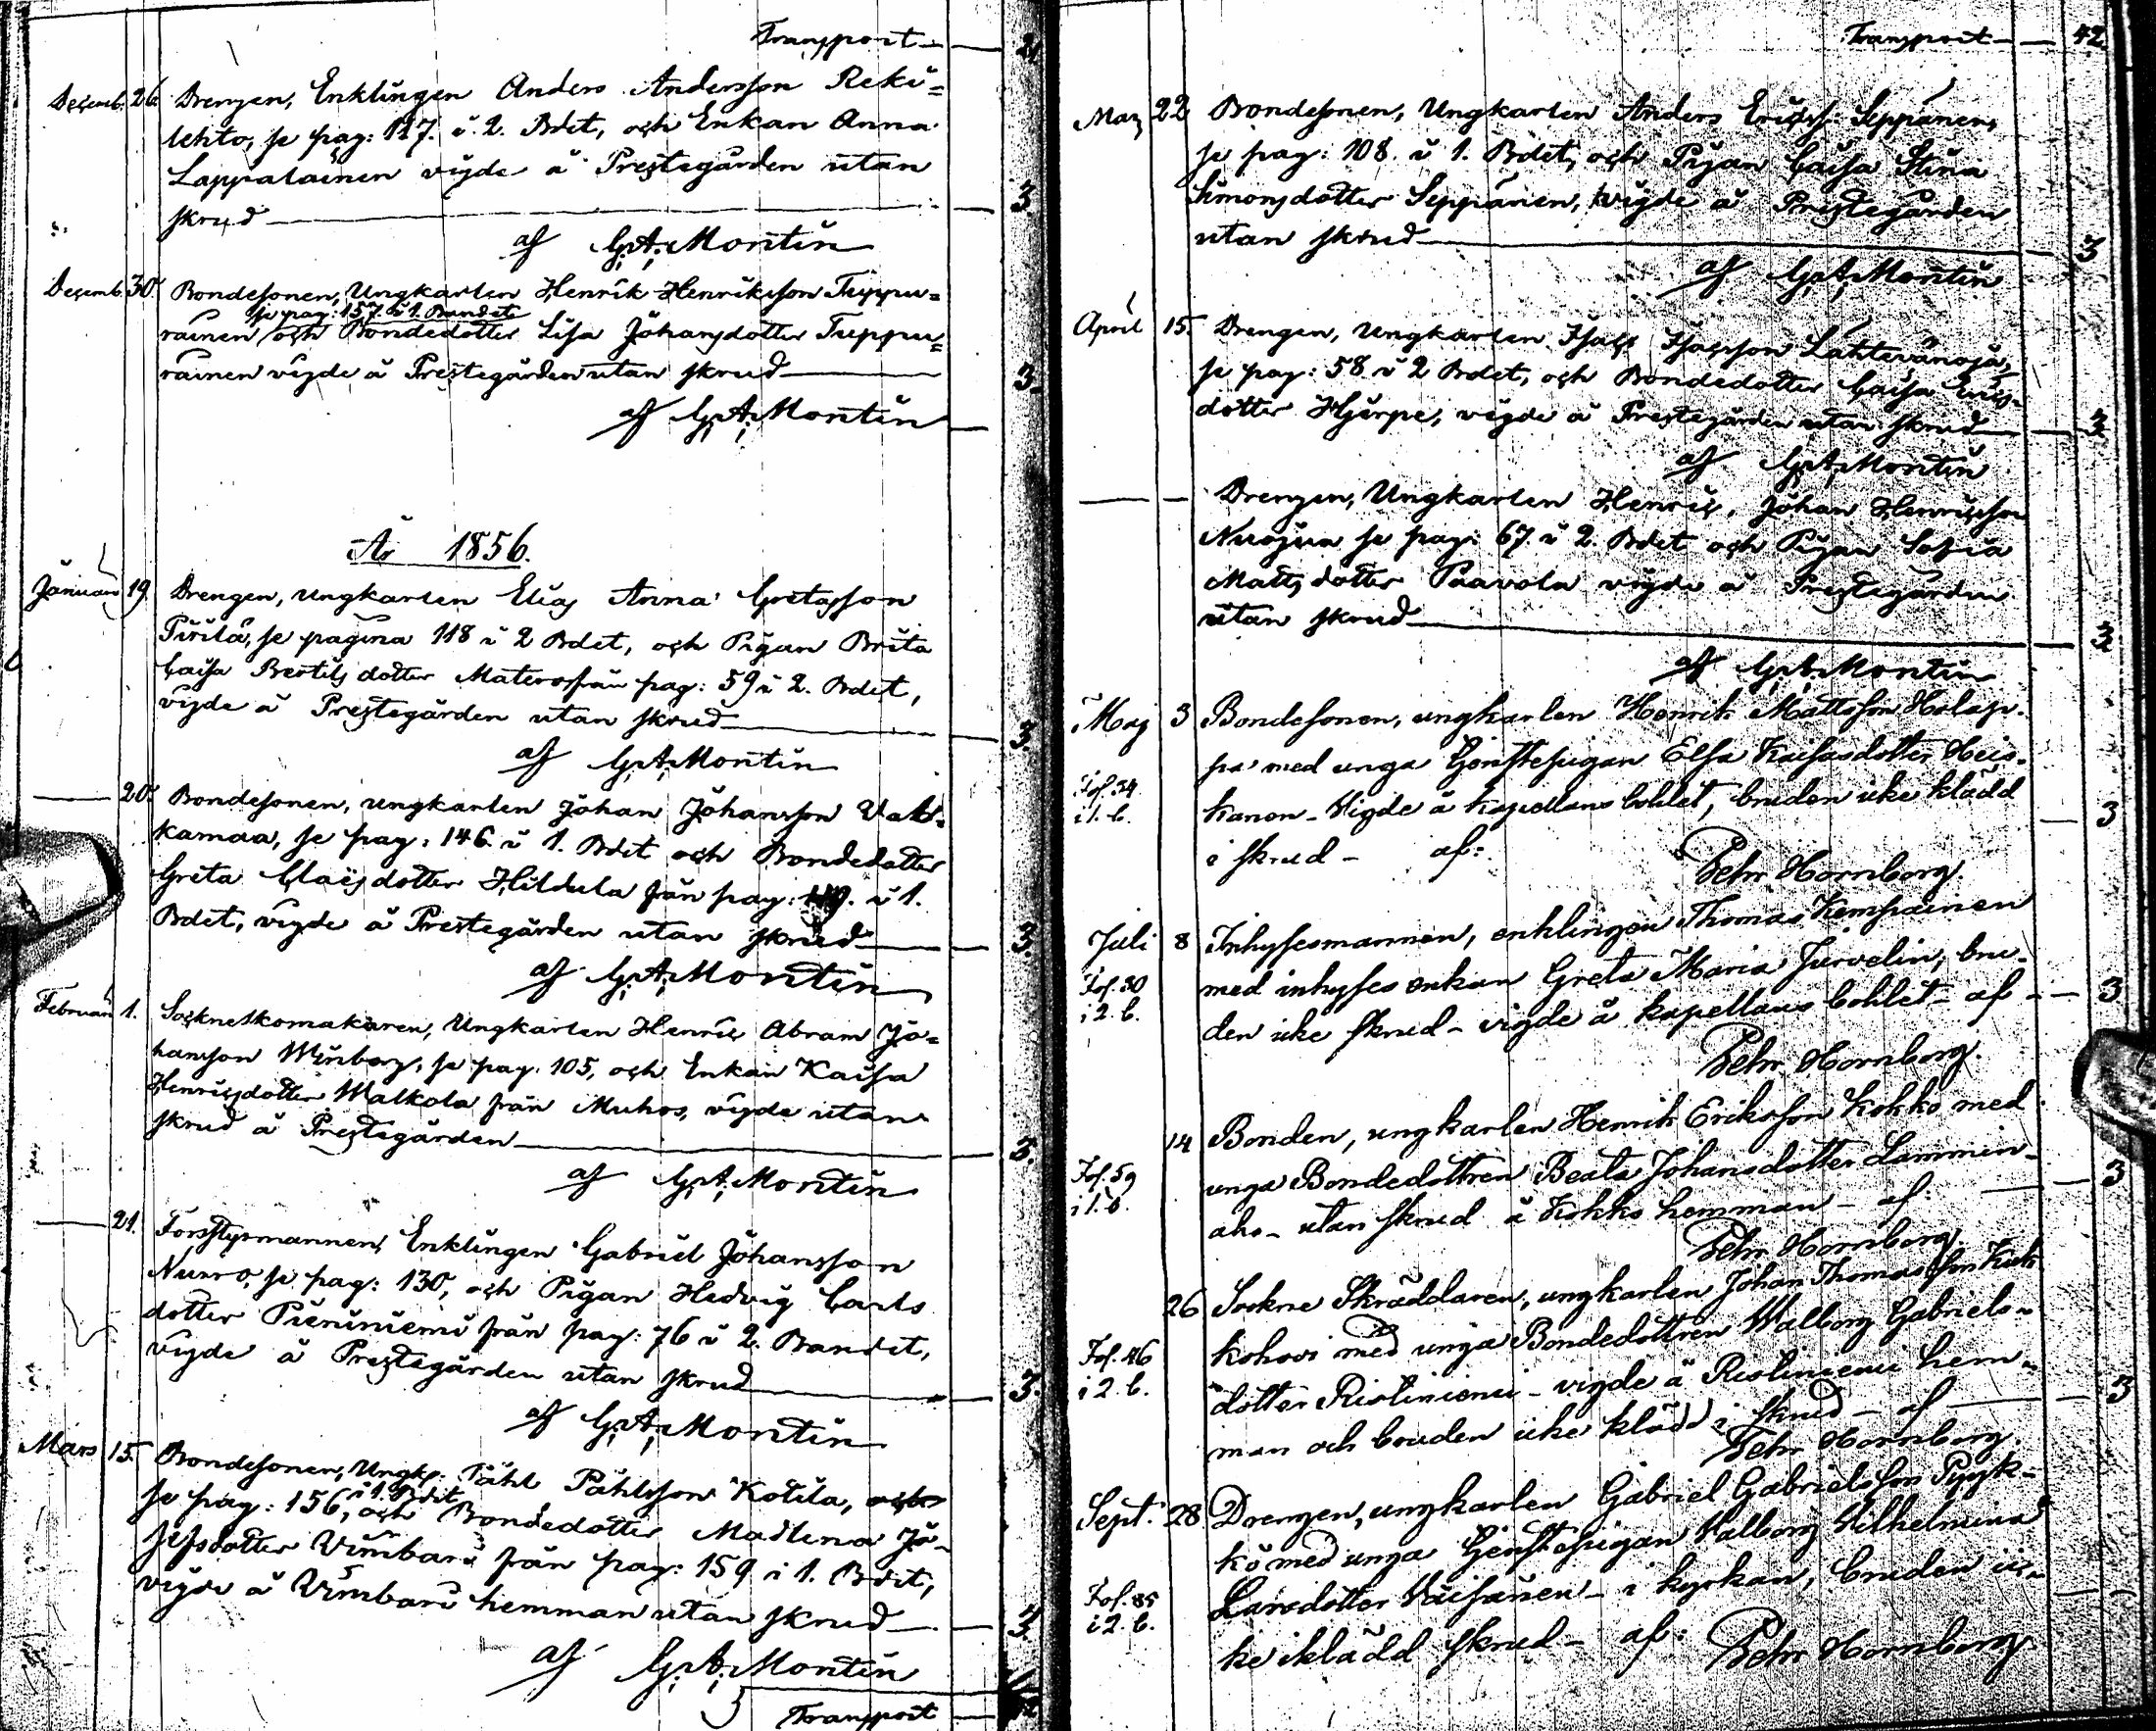 Transport — 21
Decemb. 26. Drengen, Enklingen Anders Andersson Reki=
lehto, se pag: 127. i 2. Bdet, och Enkan Anna
Lappalainen vigde å Prestegården utan
skrud — 3.
af G. A. Montin
Decemb. 30. Bondesonen, Ungkarlen Henrik Henriksson Tuppu=
se pag: 157. i 1. Bandet
rainen och Bondedotter Lisa Johansdotter Tuppu=
rainen vigde å Prestegården utan skrud — 3.
af G. A. Montin
År 1856.
Januari 19. Drengen, ungkarlen Elias Anna Gretasson
Pirilä, se pagina 118 i 2 Bdet, och Pigan Brita
Caisa Bertils dotter Matero från pag: 59 i 2. Bdet,
vigde å Prestegården utan skrud — 3.
af G. A. Montin
— 20. Bondesonen, ungkarlen Johan Johansson Vak=
kamaa, se pag: 146 i 1. Bdet och Bondedotter
Greta Claes dotter Hildula från pag: i 1.
Bdet, vigde å Prestegården utan skrud — 3.
af G. A. Montin
Februari 1. Sockneskomakaren, Ungkarlen Henric Abram Jo=
hansson Winberg, se pag. 105, och Enkan Kaisa
Henricsdotter Malkola från Muhos, vigde utan
skrud å Prestegården — 3.
af G. A. Montin
— 21. Forstlysmannen, Enklingen Gabriel Johansson
Nurro, se pag: 130, och Pigan Hedvig Carls
dotter Pieniniemi från pag: 76 i 2. Bandet,
vigde å Prestegården utan skrud — 3.
af G. A. Montin
Mars 15. Bondesonen, Ungk. Påhl Påhlsson Kotila, och
i 1 Bdet
se pag: 156, och Bondedotter Madlena Jo-
sefsdotter Vimbari från pag: 159 i 1. Bdet,
vigde å Vimbari hemman utan skrud — 3.
af G. A. Montin
Transport —
Transport — 42
Mars 22 Bondesonen, Ungkarlen Anders Ericss: Seppänen,
se pag: 108. i 1. Bdet, och Pigan Caisa Stina
Simonsdotter Seppänen, vigde å Prestegården
utan skrud — 3
af G. A. Montin
April 15. Drengen, Ungkarlen Isacs Isacsson Lähtevänoja,
se pag: 58 i 2 Bdet, och Bondedotter Caisa Erics-
dotter Hjerpe, vigde å Prestegården utan skrud — 3
af G. A. Montin
— — Drengen, Ungkarlen Henric Johan Henricsson
Nuojua se pag: 67. i 2. Bdet och Pigan Sofia
Matts dotter Paavola vigde å Prestegården
utan skrud — 3
af G. A. Montin
Maj 3 Bondesonen, ungkarlen Henrik Mattsson Holap-
pa med unga tjenstepigan Elsa Kaisasdotter Heis-
Fol. 34 kanen - Vigde å kapellans bohlet, bruden icke klädd
i 1. b. — 3
i skrud - af:
Pehr Hornborg.
Juli 8 Inhysesmannen, enklingen Thomas Kempainen
Fol. 30 med inhyses enkan Greta Maria Jurvelin; bru-
i 2. b. den icke skrud - vigde å kapellans bohlet - af — 3
Pehr Hornborg.
14 Bonden, ungkarlen Henrik Eriksson Kokko med
Fol. 59 unga Bondedottren Beata Johansdotter Lammin-
i 1. b. aho - utan skrud å Kokko hemman - af: — 3
Pehr Hornborg.
26 Sockne Skräddaren, ungkarlen Johan Thomasson Kuk
Fol. 46 kohovi med unga Bondedottren Walborg Gabriels-
i 2. b. dotter Ristiniemi - vigde å Ristiniemi hem-
man och bruden icke klädd i skrud - af — 3
Pehr Hornborg.
Sept. 28 Drengen, ungkarlen Gabriel Gabrielsson Pyyk-
kö med unga tjenstepigan Walborg Wilhelmina
Fol. 85 Larsdotter Väisänen - i kyrkan, bruden ic-
i 2. b. ke iklädd skrud - af:
Pehr Hornborg